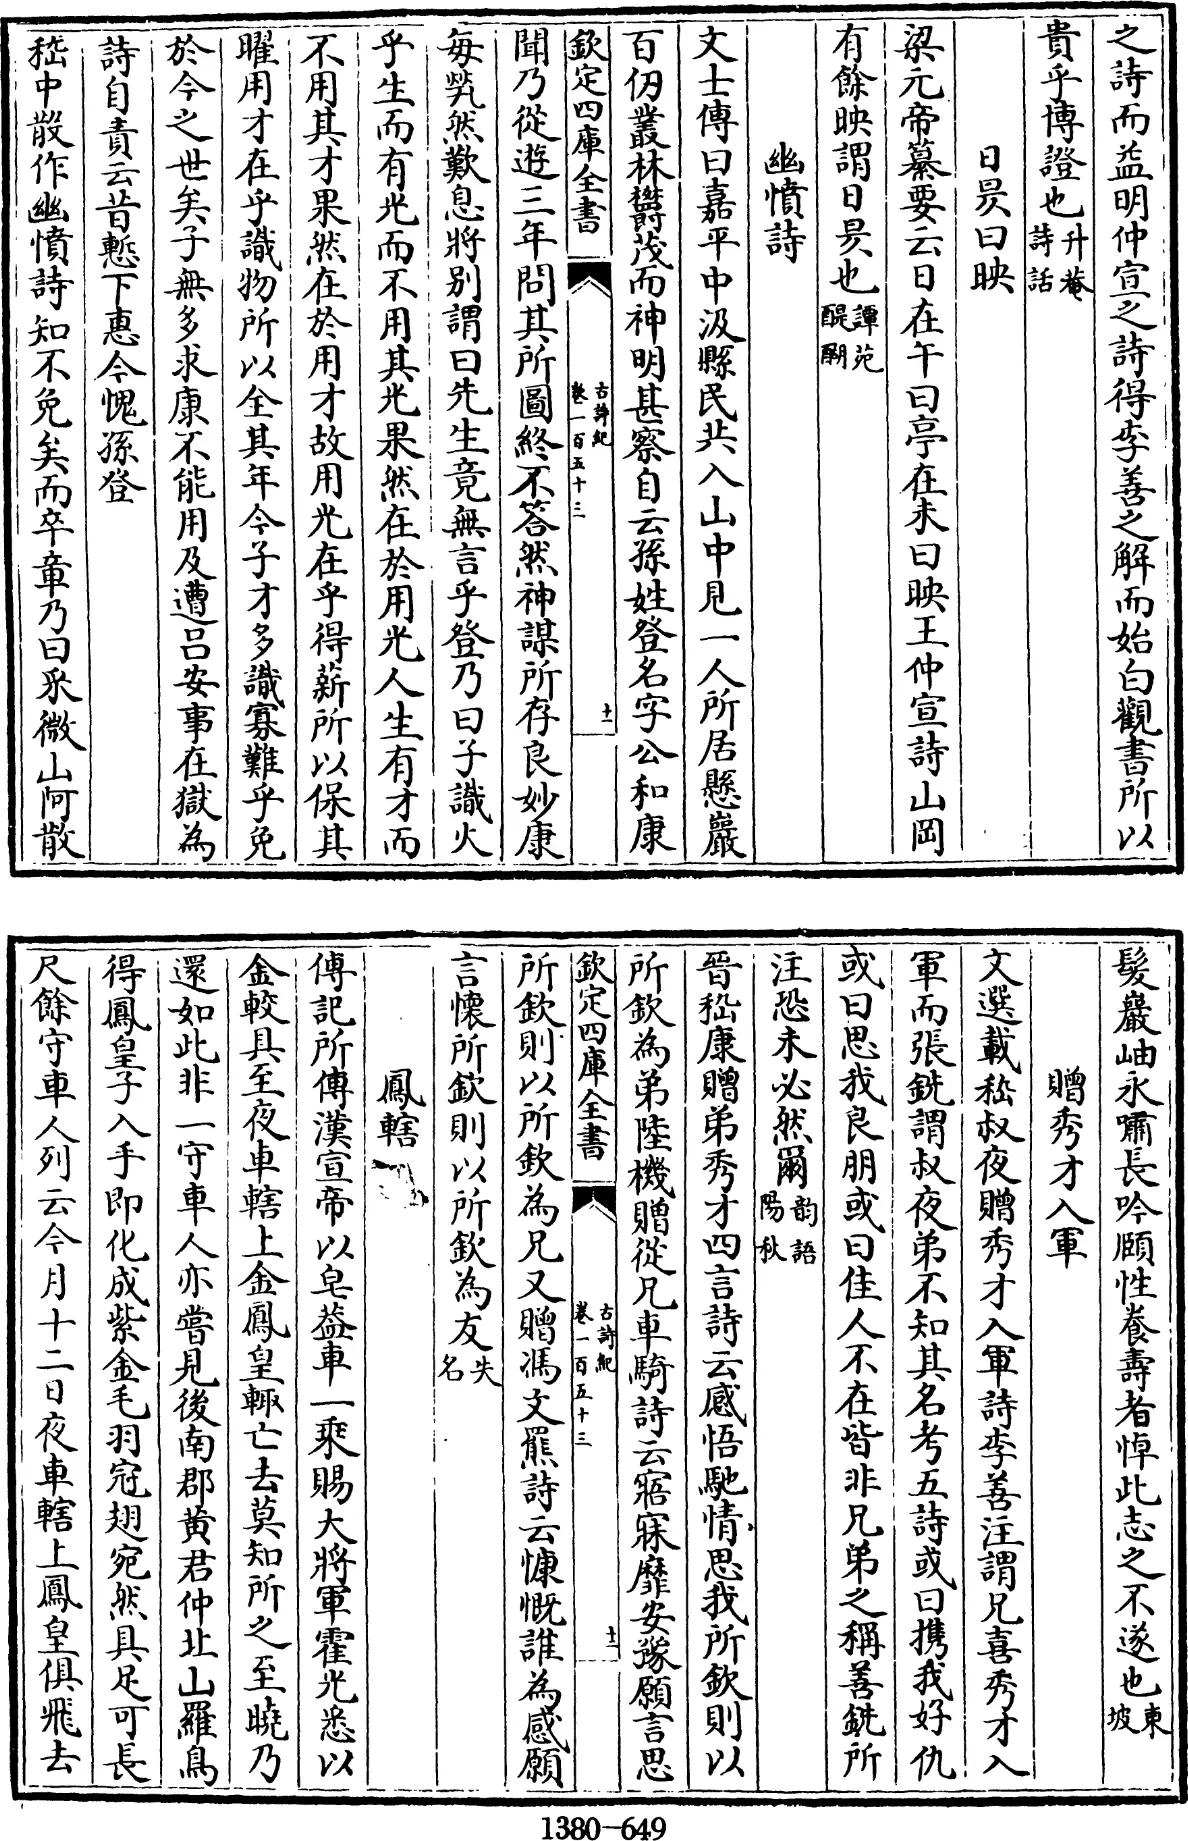 之詩而益明仲宣之詩得李善之解而始白觀書所以
貴乎博證也升菴詩話
日昃曰映
梁元帝纂要云日在午曰亭在未曰映王仲宣詩山岡
有餘映謂日昃也譚苑醍醐
幽憤詩
文士傳曰嘉平中汲縣民共入山中見一人所居懸巖
百仞叢林欝茂而神明甚察自云孫姓登名字公和康
欽定四庫全書
古詩紀
卷一百五十三
十一
聞乃從遊三年問其所圖終不答然神謀所存良妙康
每甇然歎息將别謂曰先生竟無言乎登乃曰子識火
乎生而有光而不用其光果然在於用光人生有才而
不用其才果然在於用才故用光在乎得薪所以保其
曜用才在乎識物所以全其年今子才多識寡難乎免
於今之世矣子無多求康不能用及遭吕安事在獄為
詩自責云昔慙下惠今愧孫登
嵇中散作幽憤詩知不免矣而卒章乃曰采微山阿散
髮巖岫永嘯長吟頤性養壽者悼此志之不遂也東坡
贈秀才入軍
文選載嵇叔夜贈秀才入軍詩李善注謂兄喜秀才入
軍而張銑謂叔夜弟不知其名考五詩或曰携我好仇
或曰思我良朋或曰佳人不在皆非兄弟之稱善銑所
注恐未必然爾韵語陽秋
晉嵇康贈弟秀才四言詩云感悟馳情思我所欽則以
所欽為弟陸機贈從兄車騎詩云寤寐靡安豫願言思
欽定四庫全書
古詩紀
卷一百五十三
十二
所欽則以所欽為兄又贈馮文羆詩云慷慨誰為感願
言懷所欽則以所欽為友失名
鳳轄
傳記所傳漢宣帝以皂葢車一乘賜大將軍霍光悉以
金較具至夜車轄上金鳳皇輙亡去莫知所之至曉乃
還如此非一守車人亦嘗見後南郡黄君仲北山羅鳥
得鳳皇子入手即化成紫金毛羽冠翅宛然具足可長
尺餘守車人列云今月十二日夜車轄上鳳皇俱飛去
1380-649